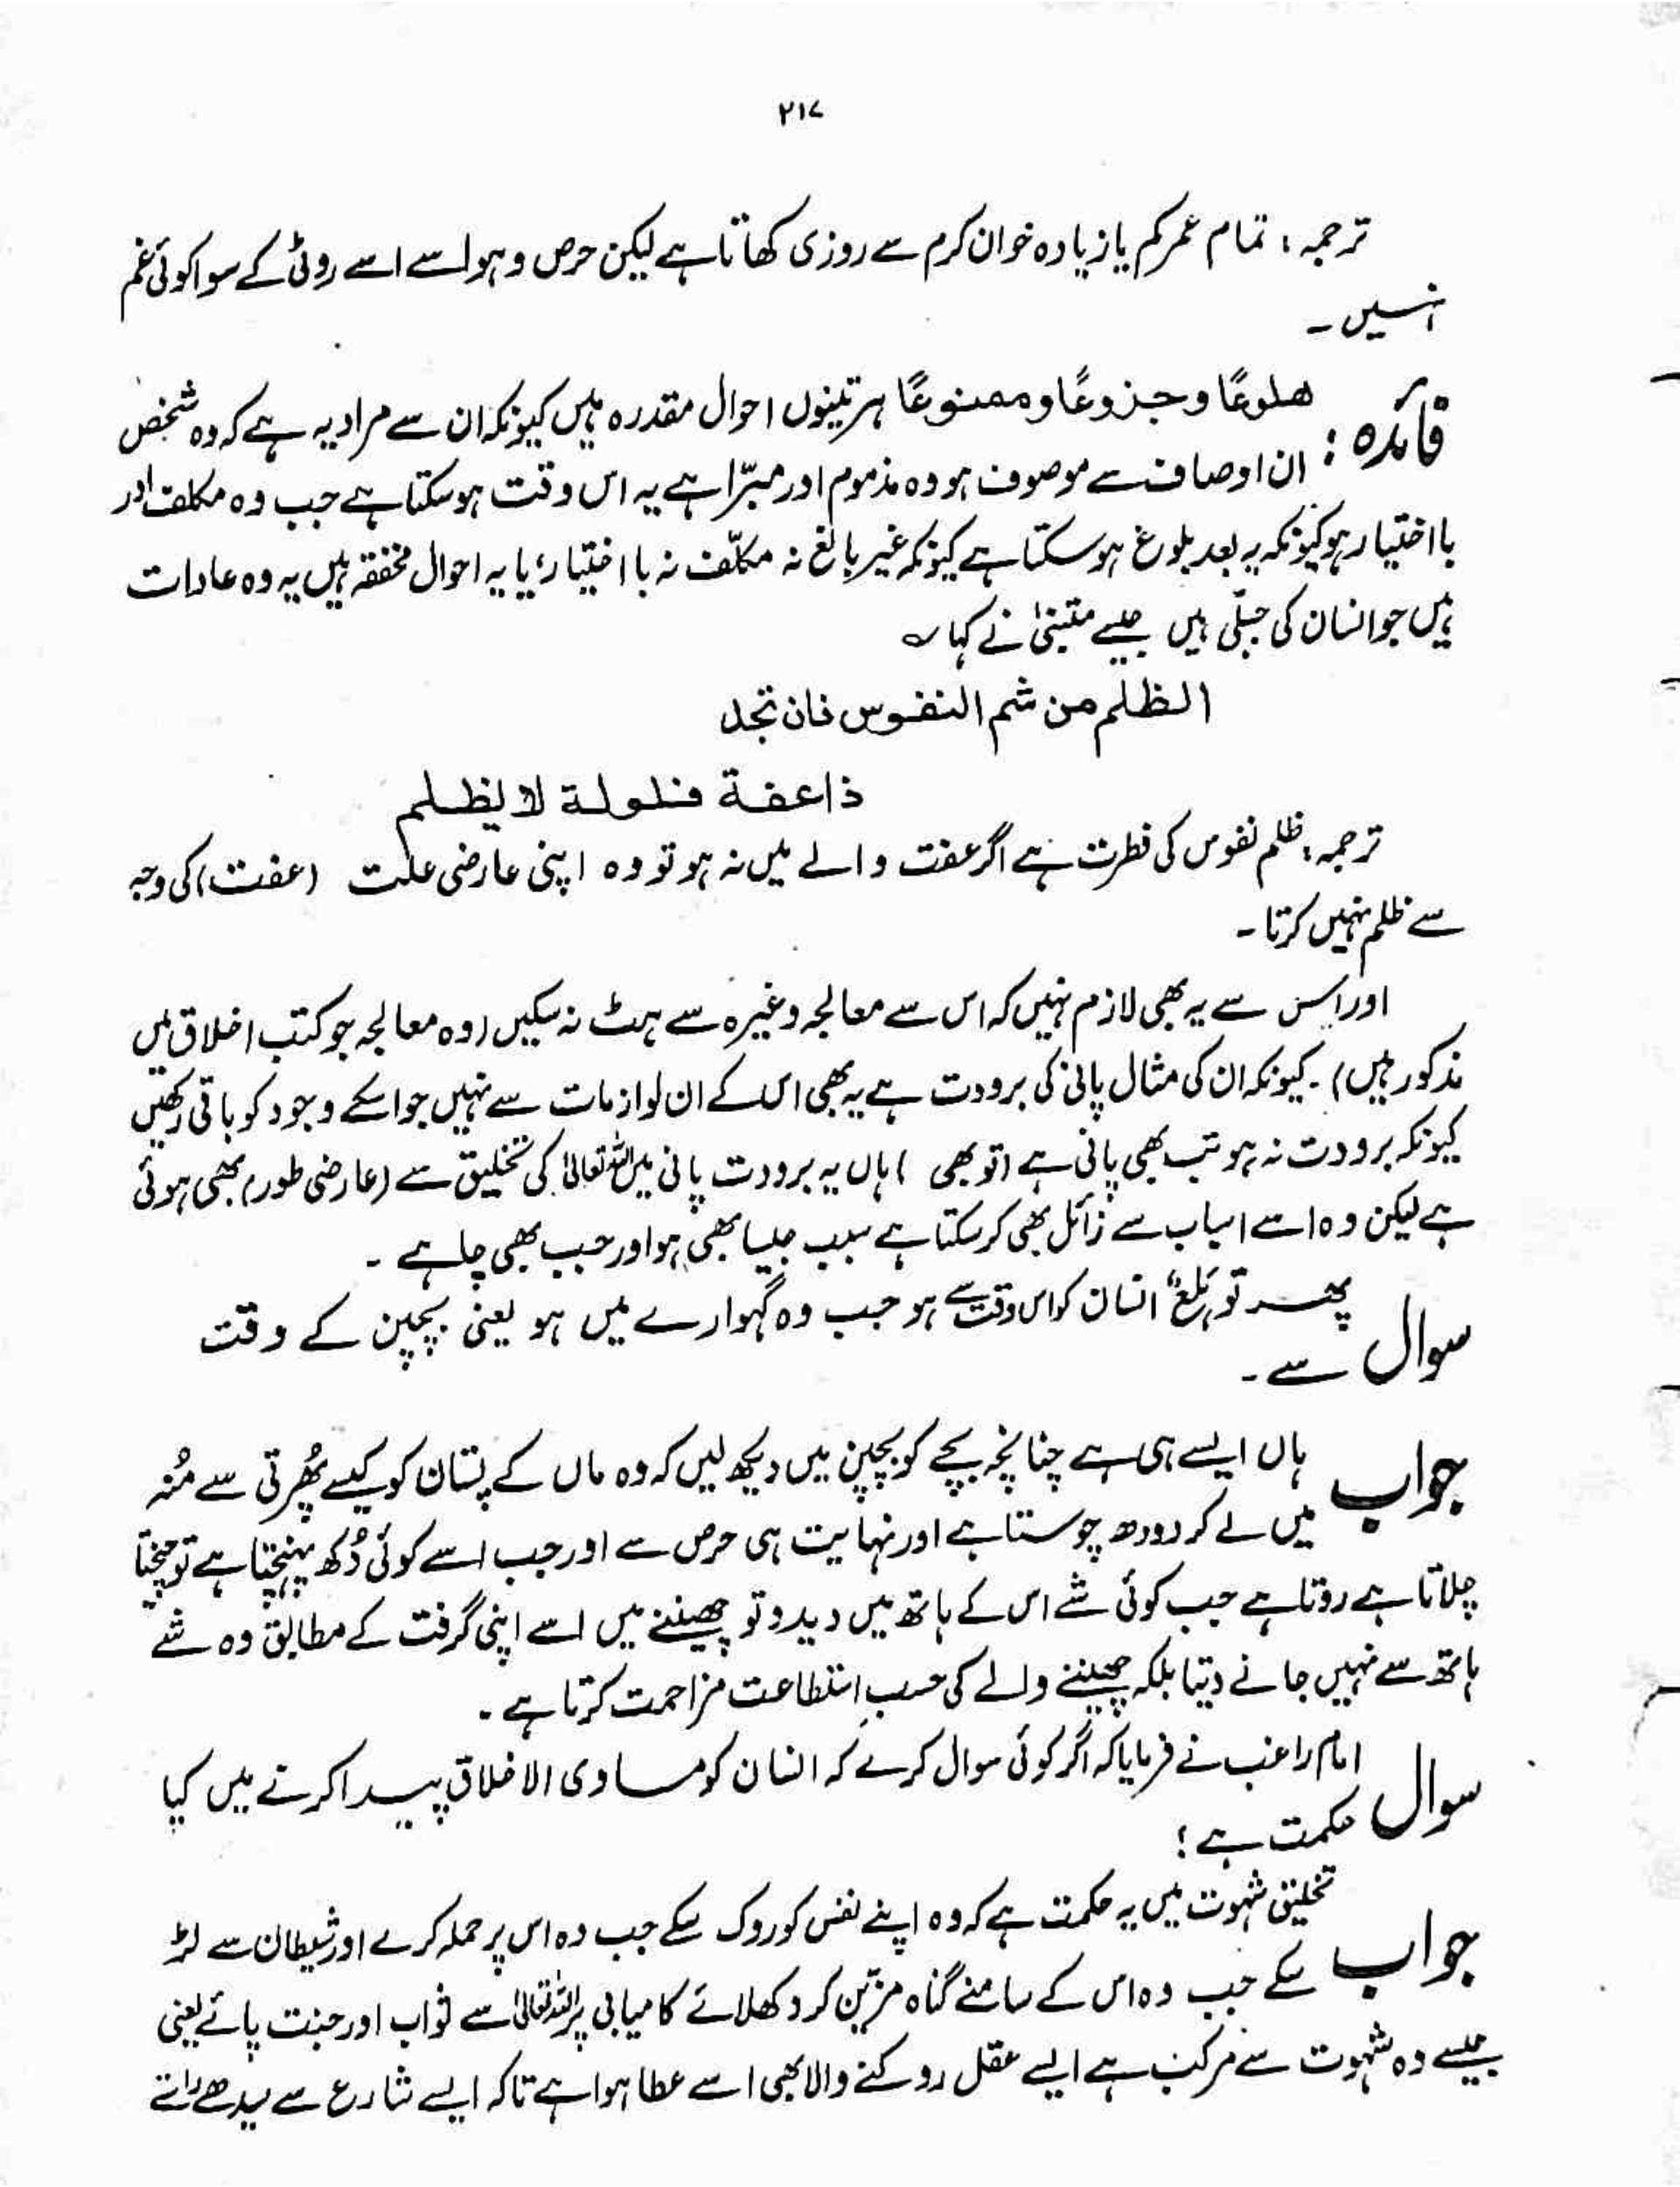 ۲۱۷
ترجمہ: تمام عمر کم یا زیادہ خوان کرم سے روزی کھاتا ہے لیکن حرص و ہوا سے اسے روٹی کے سوا کوئی غم
نہیں ۔
فائدہ : ھلوعًا و جزوعًا و ممنوعًا ہر تینوں احوال مقدرہ ہیں کیونکہ ان سے مراد یہ ہے کہ وہ شخص
ان اوصاف سے موصوف ہو وہ مذموم اور مبرّا ہے یہ اس وقت ہو سکتا ہے جب وہ مکلف اور
با اختیار ہو کیونکہ یہ بعد بلوغ ہو سکتا ہے کیونکہ غیر بالغ نہ مکلّف نہ با اختیار یا یہ احوال محققہ ہیں یہ وہ عادات
ہیں جو انسان کی جبلّی ہیں جیسے متنبیٰ نے کہا ؎
الظلم من شم النفوس فان تجد
ذا عفة فلولة لا يظلم
ترجمہ: ظلم نفوس کی فطرت ہے اگر عفت والے میں نہ ہو تو وہ اپنی عارضی علت (عفت) کی وجہ
سے ظلم نہیں کرتا ۔
اور اس سے یہ بھی لازم نہیں کہ اس سے معالجہ وغیرہ سے ہٹ نہ سکیں (وہ معالجہ جو کتب اخلاق میں
مذکور ہیں) ۔ کیونکہ ان کی مثال پانی کی برودت ہے یہ بھی اس کے ان لوازمات سے نہیں جو اسکے وجود کو باقی رکھیں
کیونکہ برودت نہ ہو تب بھی پانی ہے (تو بھی ) ہاں یہ برودت پانی میں اللہ تعالیٰ کی تخلیق سے (عارضی طور) بھی ہوئی
ہے لیکن وہ اسے اسباب سے زائل بھی کر سکتا ہے سبب جیسا بھی ہو اور جب بھی چاہے ۔
سوال پھر تو ہلع انسان کو اس وقت سے ہو جب وہ گہوارے میں ہو یعنی بچپن کے وقت
سے ۔
جواب ہاں ایسے ہی ہے چنانچہ بچے کو بچپن میں دیکھ لیں کہ وہ ماں کے پستان کو کیسے پھُرتی سے مُنہ
میں لے کر دودھ چوستا ہے اور نہایت ہی حرص سے اور جب اسے کوئی دُکھ پہنچتا ہے تو چیختا
چلاتا ہے روتا ہے جب کوئی شے اس کے ہاتھ میں دیدو تو چھیننے میں اسے اپنی گرفت کے مطابق وہ شے
ہاتھ سے نہیں جانے دیتا بلکہ چھیننے والے کی حسبِ استطاعت مزاحمت کرتا ہے ۔
سوال امام راغب نے فرمایا کہ اگر کوئی سوال کرے کہ انسان کو مساوی الاخلاق پیدا کرنے میں کیا
حکمت ہے ؛
جواب تخلیق شہوت میں یہ حکمت ہے کہ وہ اپنے نفس کو روک سکے جب وہ اس پر حملہ کرے اور شیطان سے لڑ
سکے جب وہ اس کے سامنے گناہ مزیّن کر دکھلائے کامیابی پر اللہ تعالیٰ سے ثواب اور جنت پائے یعنی
جیسے وہ شہوت سے مرکب ہے ایسے عقل روکنے والا بھی اسے عطا ہوا ہے تاکہ ایسے شارع سے سیدھے راستے